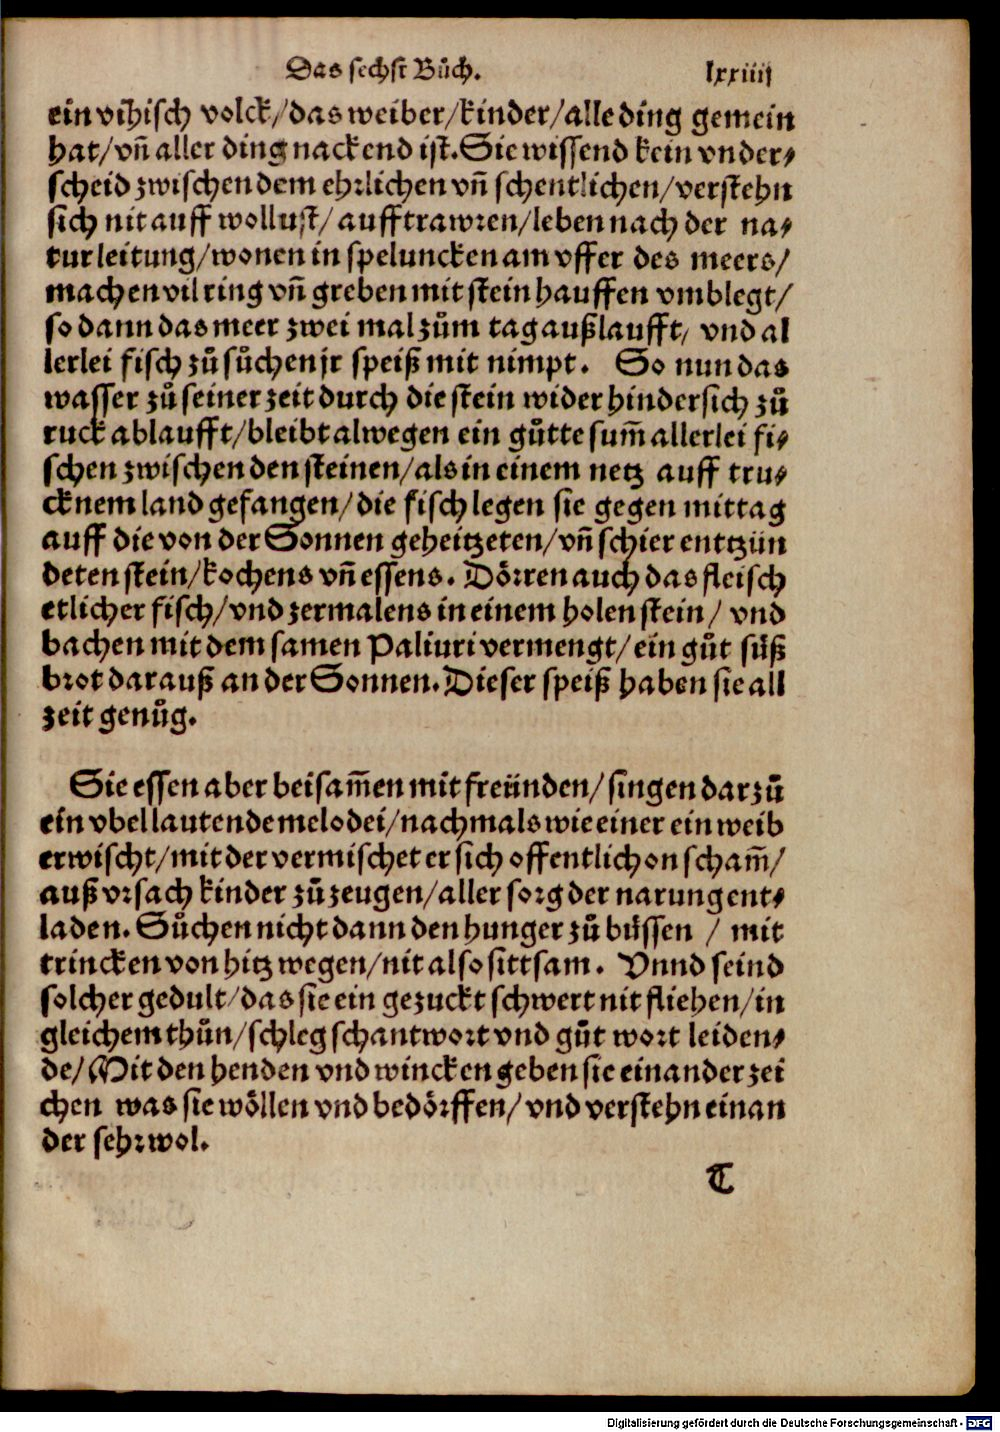 Das sechst Bůch. lxxiiij
ein vihisch volck/das weiber/kinder/alle ding gemein
hat/vñ aller ding nackend ist. Sie wissend kein vnder⸗
scheid zwischen dem ehrlichen vñ schentlichen/verstehn
sich nit auff wollust/ auff trawren/leben nach der na⸗
tur leitung/wonen in speluncken am vffer des meers/
machen vil ring vñ greben mit stein hauffen vmblegt/
so dann das meer zwei mal zům tag außlaufft/ vnd al
lerlei fisch zů sůchen jr speiß mit nimpt. So nun das
wasser zů seiner zeit durch die stein wider hindersich zů
ruck ablaufft/bleibt alwegen ein gůtte sum̃ allerlei fi⸗
schen zwischen den steinen/als in einem netz auff tru⸗
cknem land gefangen/die fisch legen sie gegen mittag
auff die von der Sonnen geheitzeten/vñ schier entzün
deten stein/kochens vñ essens. Dörren auch das fleisch
etlicher fisch/vnd zermalens in einem holen stein/ vnd
bachen mit dem samen Paliuri vermengt/ein gůt süß
brot darauß an der Sonnen. Dieser speiß haben sie all
zeit genůg.
Sie essen aber beisam̃en mit freünden/singen darzů
ein vbellautende melodei/nachmals wie einer ein weib
erwischt/mit der vermischet er sich offentlich on scham̃/
auß vrsach kinder zů zeugen/aller sorg der narung ent⸗
laden. Sůchen nicht dann den hunger zů büssen / mit
trincken von hitz wegen/nit also sittsam. Vnnd seind
solcher gedult/das sie ein gezuckt schwert nit fliehen/in
gleichem thůn/schleg schantwort vnd gůt wort leiden⸗
de/Mit den henden vnd wincken geben sie einander zei
chen was sie wöllen vnd bedörffen/ vnd verstehn einan
der sehr wol.
T
Digitalisierung gefördert durch die Deutsche Forschungsgemeinschaft - DFG